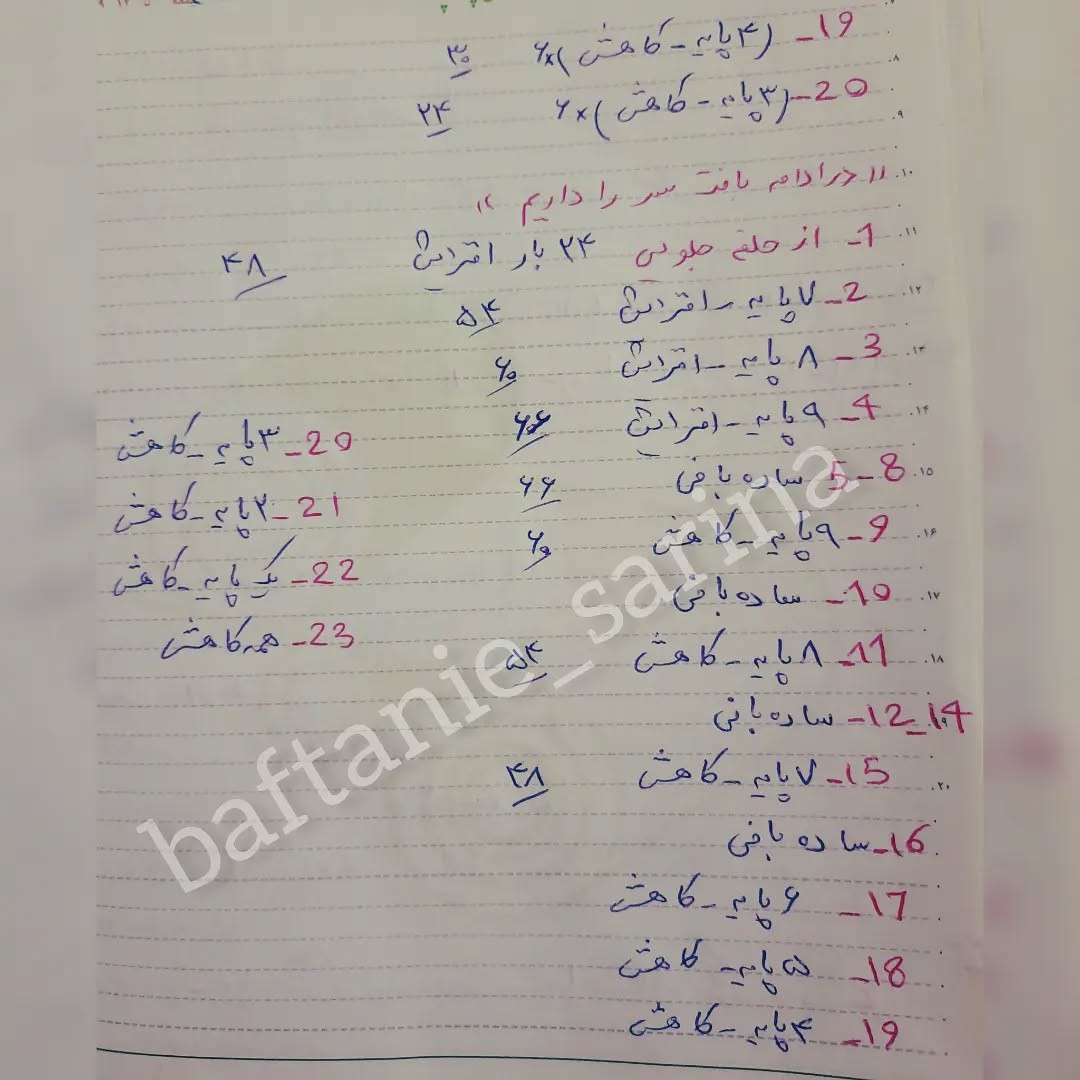 19_ (۴ پایه _ کاهش)×۶ ۳۰
20_ (۳ پایه _ کاهش)×۶ ۲۴
"در ادامه بافت سر را داریم"
1_ از حلقه جلویی ۲۴ بار افزایش ۴۸
2_ ۷ پایه _ افزایش ۵۴
3_ ۸ پایه _ افزایش ۶۰
4_ ۹ پایه _ افزایش ۶۶
5_8 ساده بافی ۶۶
9_ ۹ پایه _ کاهش ۶۰
10_ ساده بافی
11_ ۸ پایه _ کاهش ۵۴
12_14_ ساده بافی
15_ ۷ پایه _ کاهش ۴۸
16_ ساده بافی
17_ ۶ پایه _ کاهش
18_ ۵ پایه _ کاهش
19_ ۴ پایه _ کاهش
20_ ۳ پایه _ کاهش
21_ ۲ پایه _ کاهش
22_ یک پایه _ کاهش
23_ همه کاهش
baftanie_sarina